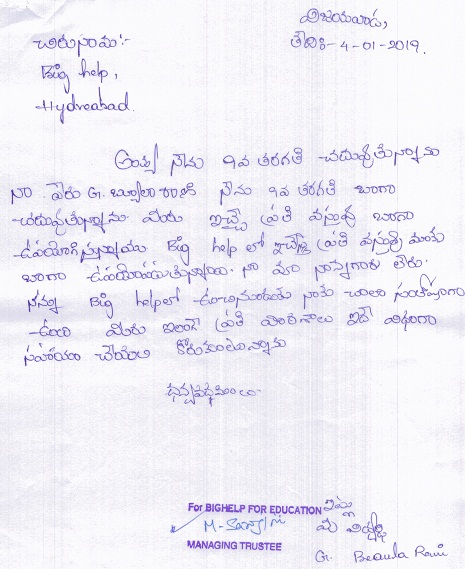 విజయవాడ,
తేది:- 4-01-2019.
చిరునామా:-
Big help,
Hydreabad.
నేను 9వ తరగతి చదువుతున్నాను
నా పేరు G. బ్యూలా రాణి నేను 9వ తరగతి బాగా
చదువుతున్నాను మీరు ఇచ్చే ప్రతి వస్తువు బాగా
ఉపయోగిస్తున్నాము Big help లో ఇచ్చిన ప్రతి వస్తువు మాకు
బాగా ఉపయోపడుతున్నాయి. నా నాన్నగారు లేరు.
నన్ను Big helpలో నాకు చాలా సంతోషంగా
ఉంది మీరు ఇలాగే ప్రతి ఇదే విధంగా
సహాయం చేయాలి కోరుకుంటున్నాను
ధన్యవాదములు.
For BIGHELP FOR EDUCATION
MANAGING TRUSTEE
ఇట్లు
మీ విద్యార్థి
G. Beaula Rani